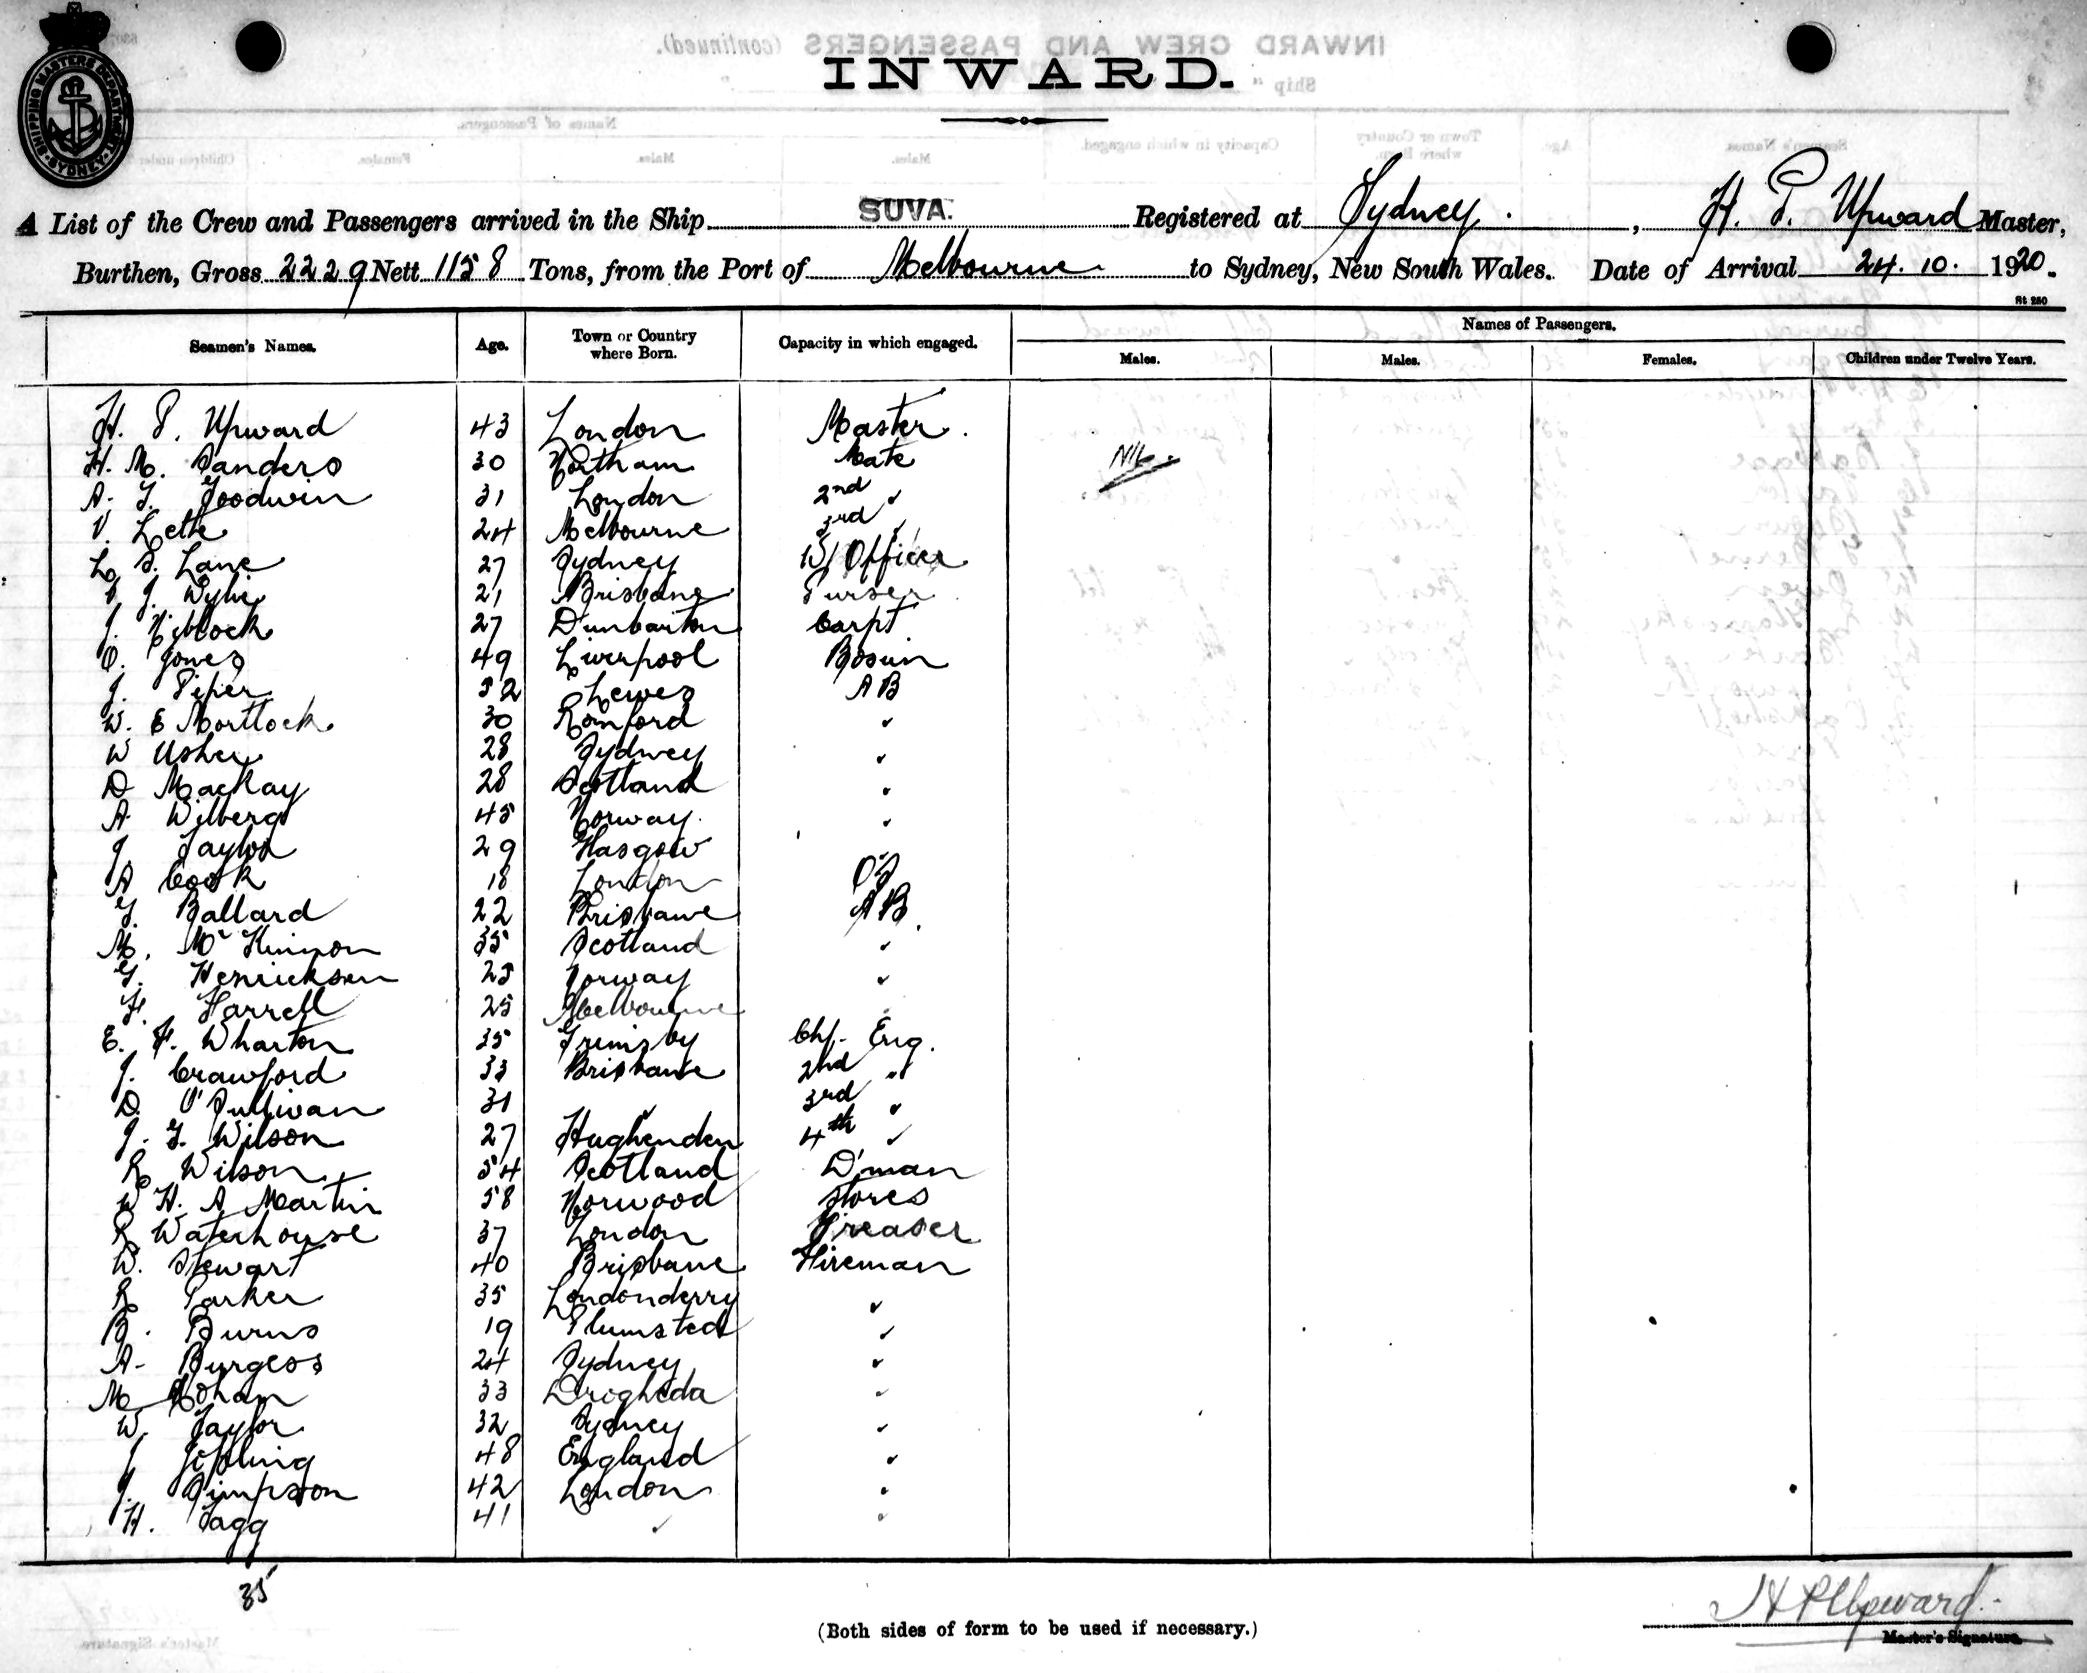 INWARD.
SHIPPING MASTERS DEPARTMENT SYDNEY
A List of the Crew and Passengers arrived in the Ship SUVA. Registered at Sydney. , H. P. Upward Master,
Burthen, Gross 2229 Nett 1158 Tons, from the Port of Melbourne to Sydney, New South Wales. Date of Arrival 24.10. 1920.
Rt 250
Seamen's Names. Age. Town or Country where Born. Capacity in which engaged. Names of Passengers.
Males. Males. Females. Children under Twelve Years.
H. P. Upward 43 London Master.
H. M. Sanders 30 Northam Mate NIL.
A. G. Goodwin 31 London 2nd "
V. Lette 24 Melbourne 3rd "
L. S. Lane 27 Sydney W/Officer
J. Wylie 21 Brisbane Purser
J. Niblock 27 Dunbarton Carpt
O. Jones 49 Liverpool Bosun
J. Piper 52 Lewes AB
W. E Mortlock 30 Romford "
W Usher 28 Sydney "
D Mackay 28 Scotland "
A. Wilberg 45 Norway. "
J. Taylor 29 Glasgow "
A Cook 18 London OS
G. Ballard 22 Brisbane AB
M. McKinnon 35 Scotland "
G. Henricksen 25 Norway "
F. Farrell 25 Melbourne "
E. F. Wharton 35 Grimsby Chf. Eng.
J. Crawford 33 Brisbane 2nd "
D. O'Sullivan 31 " 3rd "
J. G. Wilson 27 Hughenden 4th "
R Wilson 54 Scotland D'man
W H. A Martin 58 Norwood Stores
R Waterhouse 37 London Greaser
W. Stewart 40 Brisbane Fireman
R Parker 35 Londonderry "
B. Burns 19 Plumsted "
A. Burgess 24 Sydney "
M 33 Drogheda "
W. Taylor 32 Sydney "
J Jopling 48 England "
J. Simpson 42 London "
H. Tagg 41 " "
35
H P Upward.
(Both sides of form to be used if necessary.)
Master's Signature.